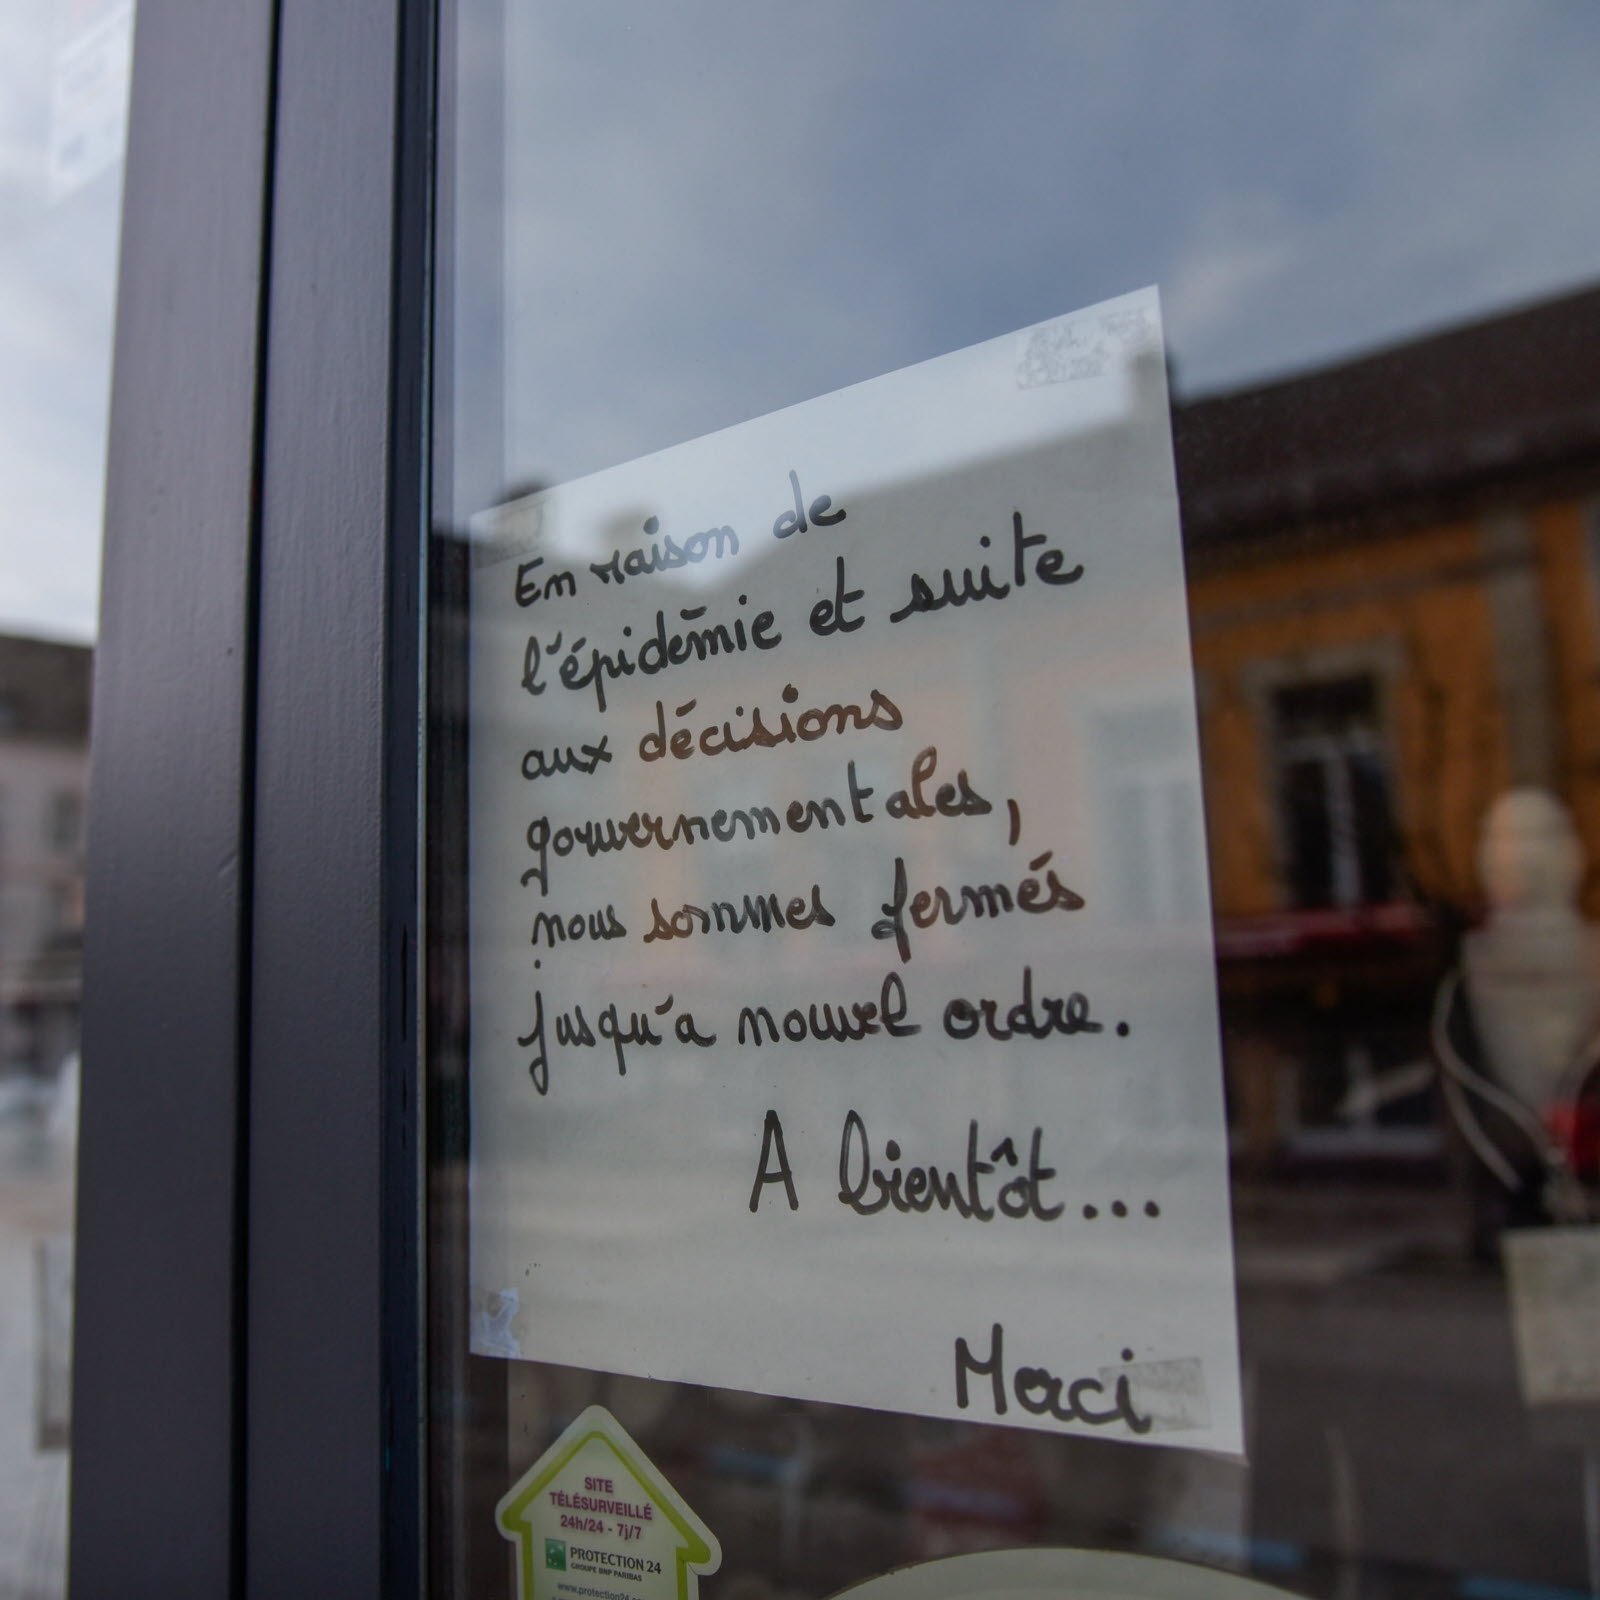 En raison de
l'épidémie et suite
aux décisions
gouvernementales,
nous sommes fermés
jusqu'a nouvel ordre.
A bientôt...
Merci
SITE
TÉLÉSURVEILLÉ
24h/24 - 7j/7
PROTECTION 24
GROUPE BNP PARIBAS
www.protection24